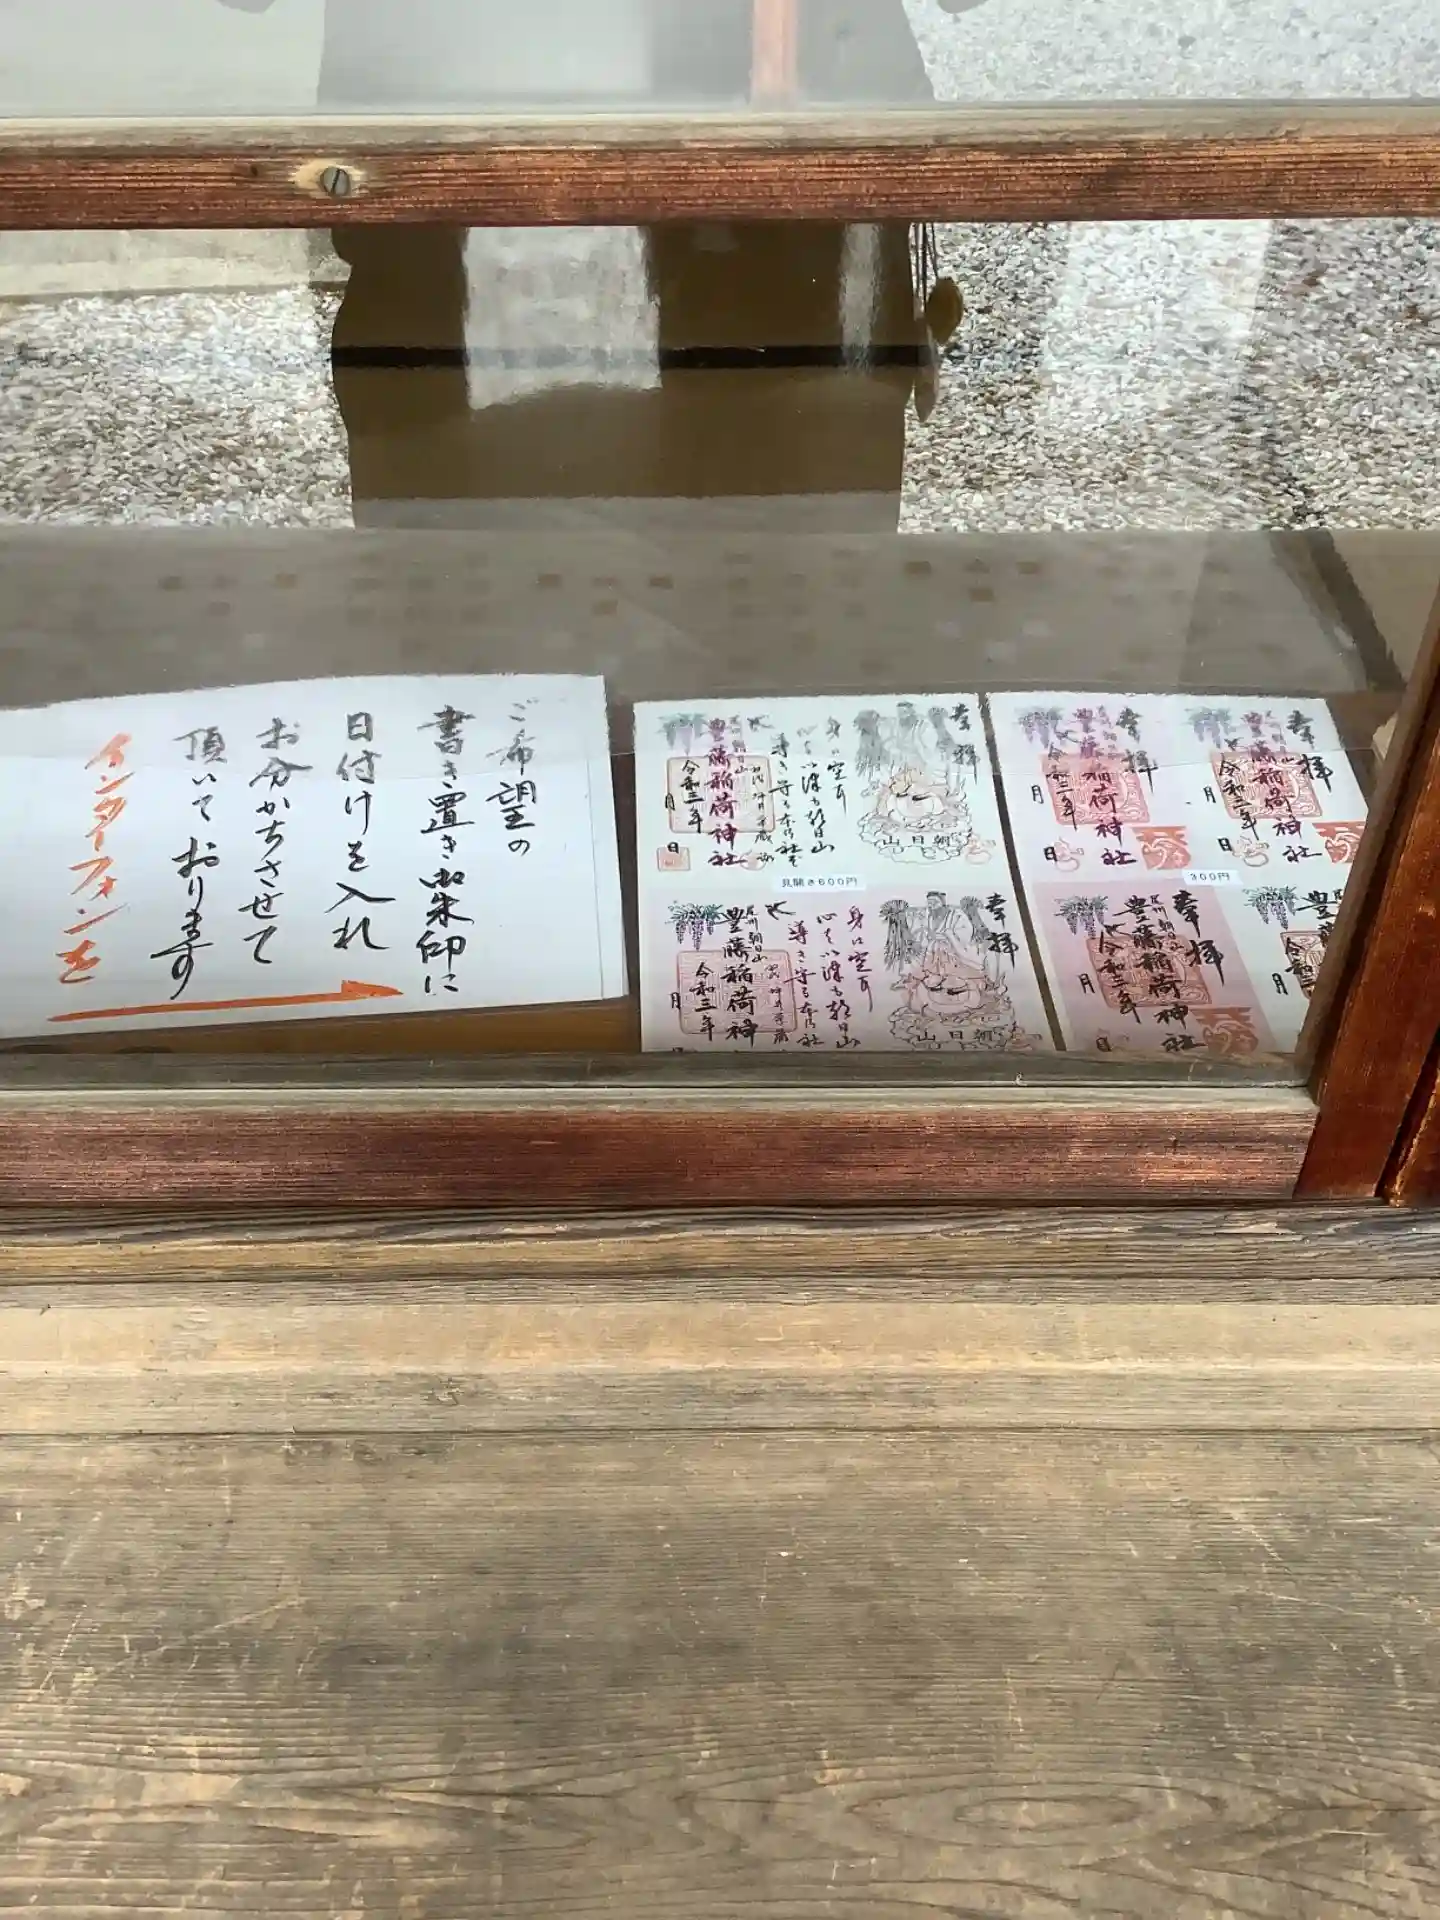 ご希望の
書き置き御朱印に
日付けを入れ
お分かちさせて
頂いております
インターフォンを
奉拝
身に宝可
山日朝
豊藤稲荷神社
令和三年
月
日
見開き600円
奉拝
尾州朝日山
豊藤稲荷神
令和三年
月
山日朝
奉拝
豊藤稲荷神社
令和三年
月
日
奉拝
豊藤稲荷神社
令和三年
月
日
300円
奉拝
尾州朝日山
豊藤稲荷神社
令和三年
月
日
豊藤
令和
月